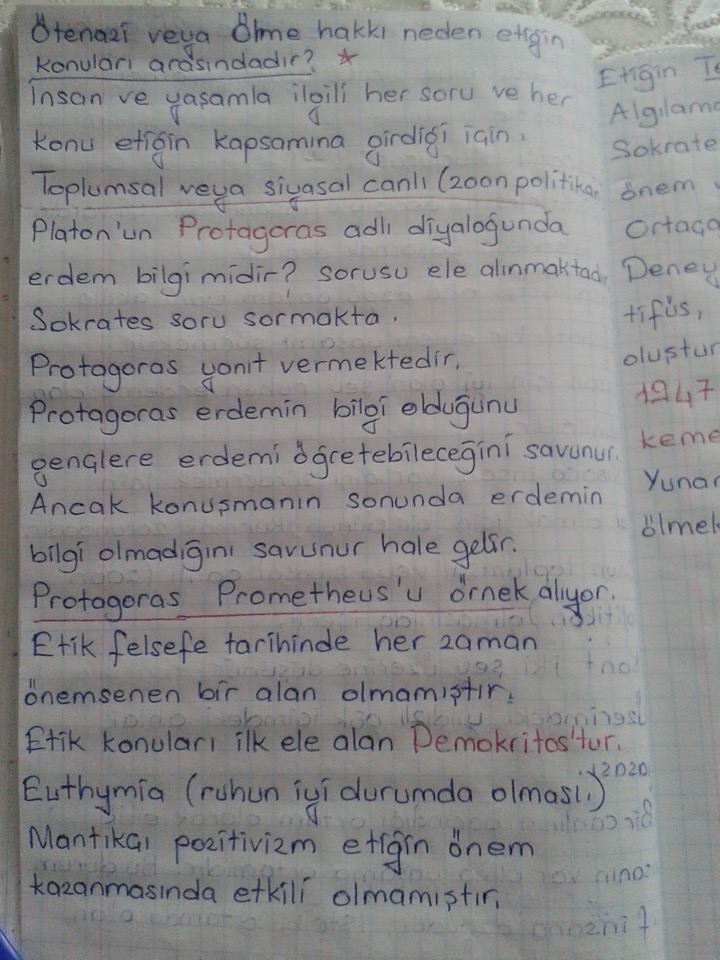 Ötenazi veya Ölme hakkı neden etiğin
konuları arasındadır? *
İnsan ve yaşamla ilgili her soru ve her
konu etiğin kapsamına girdiği için.
Toplumsal veya siyasal canlı (zoon politikon
Platon'un Protagoras adlı diyaloğunda
erdem bilgi midir? sorusu ele alınmaktadı
Sokrates soru sormakta.
Protagoras yanıt vermektedir.
Protagoras erdemin bilgi olduğunu
gençlere erdemi öğretebileceğini savunur.
Ancak konuşmanın sonunda erdemin
bilgi olmadığını savunur hale gelir.
Protagoras Prometheus'u örnek alıyor.
Etik felsefe tarihinde her zaman
önemsenen bir alan olmamıştır.
Etik konuları ilk ele alan Demokritos'tur.
Euthymia (ruhun iyi durumda olması.)
Mantıkçı pozitivizm etiğin önem
kazanmasında etkili olmamıştır.
Etiğin Te
Algılama
Sokrate
önem
Ortaça
Deney
tifüs,
oluştur
1947
keme
Yunan
ölmek